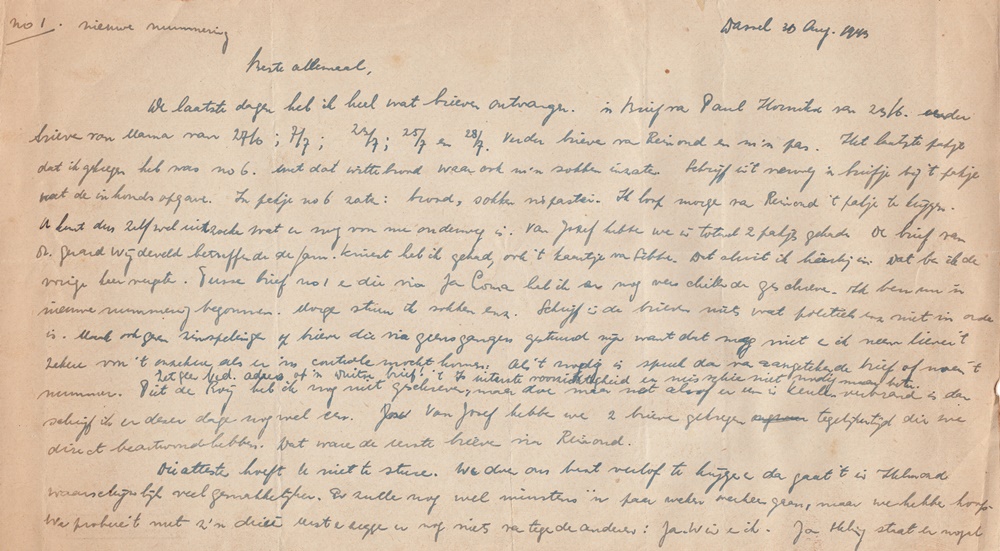 no 1. nieuwe nummering
Dassel 30 Aug. 1943
Beste allemaal,
De laatste dagen heb ik heel wat brieven ontvangen. 'n Brief van Paul van 29/6. verder
brieven van Mama van 27/6; 7/7; 25/7 en 28/7. Verder brieven van Reinoud en m'n pas. Het laatste pakje
dat ik gekregen heb was no 6. met dat wittebrood waar ook m'n sokken in zaten. Schrijf in't vervolg 'n briefje bij 't pakje
met de inhoudsopgave. In pakje no 6 zaten: brood, sokken Ik loop morgen van Reinoud 't pakje te krijgen.
U kunt dus zelf wel uitzoeken wat er nog voor me onderweg is. Van Jozef hebben we in totaal 2 pakjes gehad. De brief van
betreffende de fam. heb ik gehad, ook 't kaartje van Dat sluit ik hierbij in. Dat ben ik de
vorige keer vergeten. Tussen brief no 1 en die via Jan heb ik er nog verschillende geschreven. Ik ben nu 'n
nieuwe nummering begonnen. Morgen stuur ik sokken enz. Schrijf in de brieven niets wat politiek enz niet in orde
is. ook geen zinspelingen op brieven die via gestuurd zijn want dat mag niet en ik neem liever 't
zekere voor 't onzekere als er 'ns controle mocht komen. Als 't nodig is speel dan via aangetekende brief of noem 't
Zet geen Ned. adres of 'n Duitse brief! 't Is uiterste voorzichtigheid en misschien niet nodig maar beter.
nummer. Piet de Rooij heb ik nog niet geschreven, maar doe maar net alsof er een in Keulen verbrand is dan
schrijf ik er dezer dagen nog wel een. Van Jozef hebben we 2 brieven gekregen tegelijkertijd die we
direct beantwoord hebben. Dat waren de eerste brieven via Reinoud.
Die attesten hoeft U niet te sturen. We doen ons best verlof te krijgen en dan gaat 't in Helmond
waarschijnlijk veel gemakkelijker. Er zullen nog wel minstens 'n paar weken overheen gaan, maar we hebben hoop.
We proberen 't met z'n drieën eerst en zeggen er nog niets van tegen de anderen: Jan W en ik. Jan staat er nogal